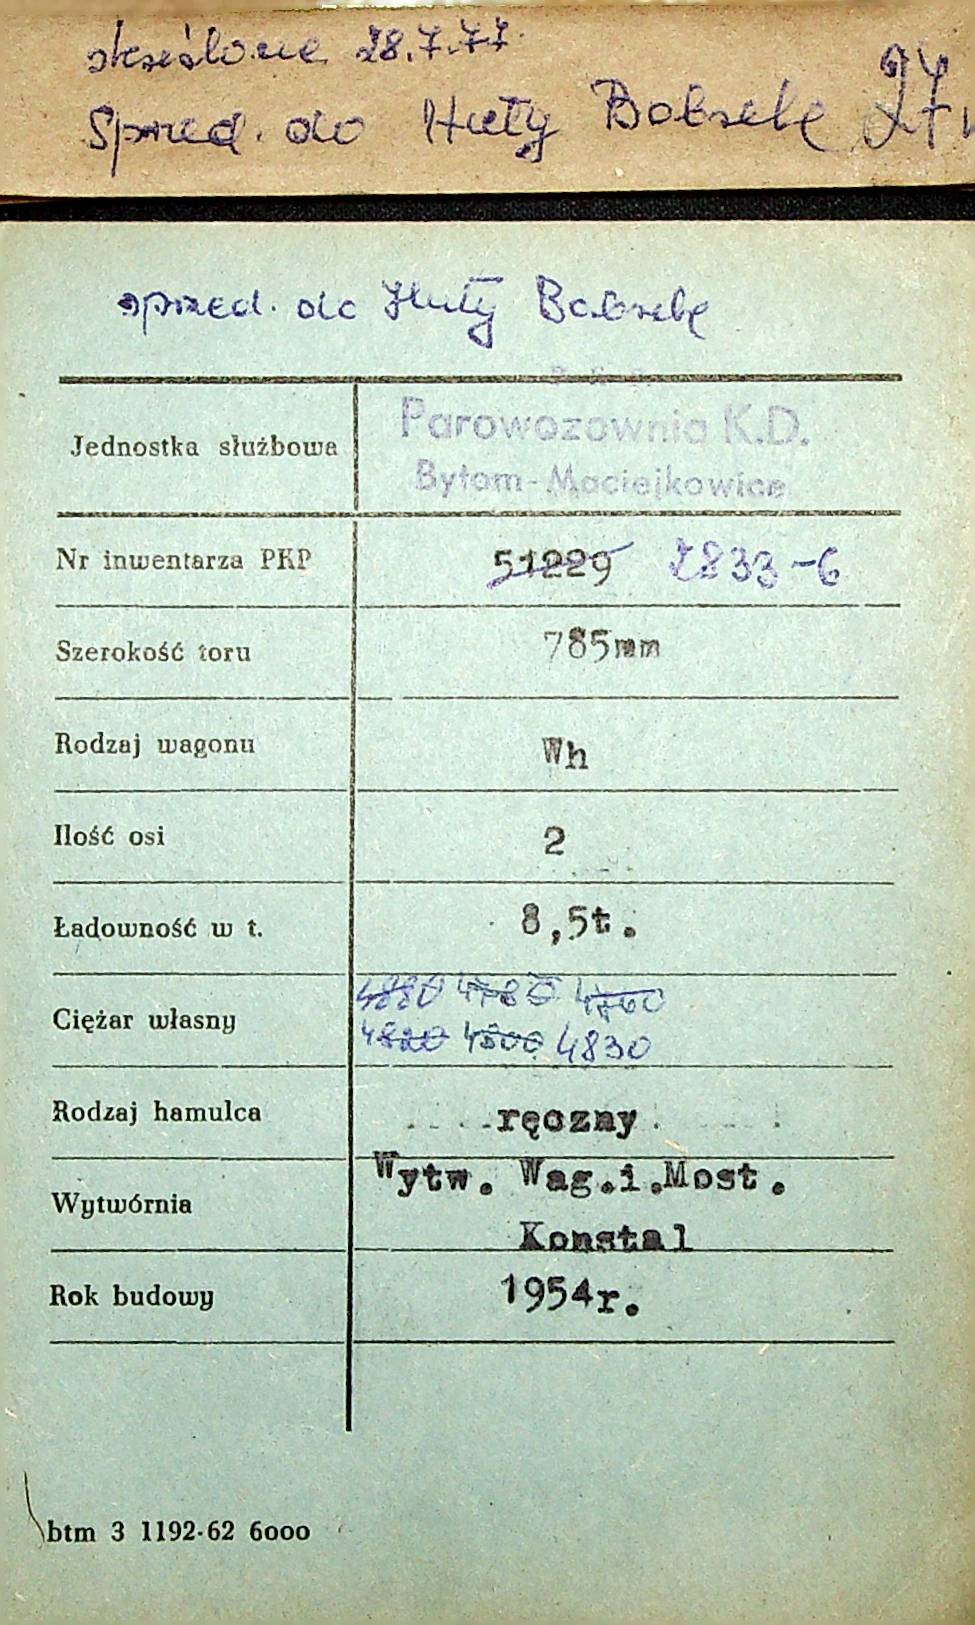 skreślone 28.7.77.
Sprzed. do Huty Bobrek
sprzed. do Huty Bobrek
Jednostka służbowa
Parowozownia K.D.
Bytom-Maciejkowice
Nr inwentarza PKP 51229 2833-6
Szerokość toru 785mm
Rodzaj wagonu Wh
Ilość osi 2
Ładowność w t. 8,5t.
4880 4780 4760
Ciężar własny
4820 4800 4830
Rodzaj hamulca ręczny
Wytw. Wag.i.Most.
Wytwórnia
Konstal
Rok budowy 1954r.
btm 3 1192-62 6000